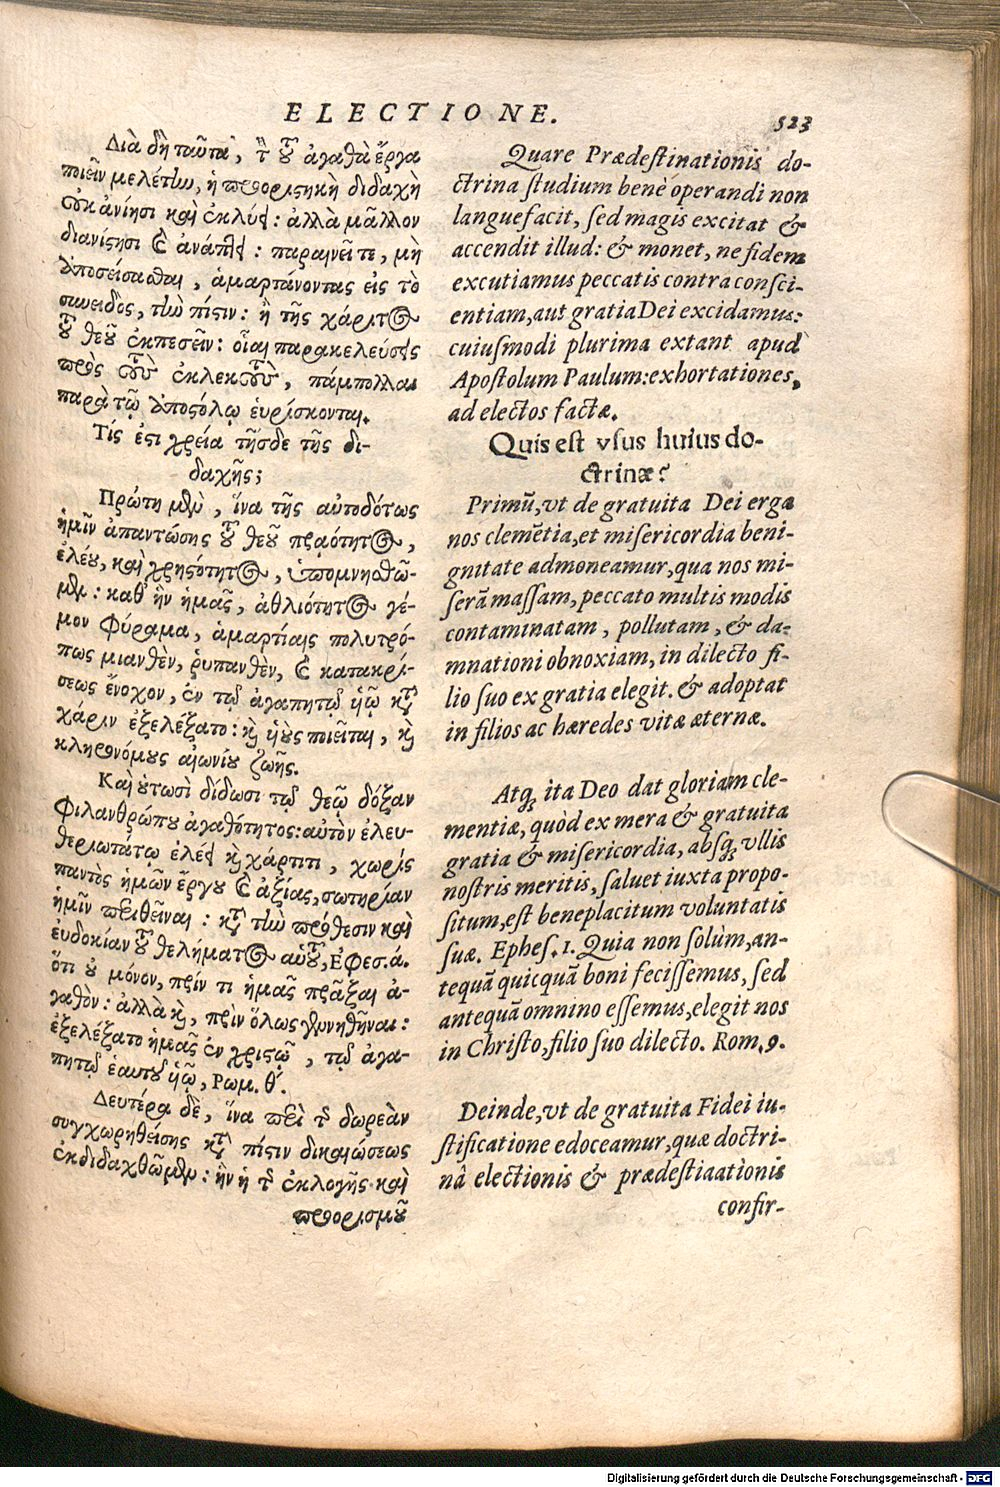 ELECTIONE.
523
Διὰ δὴ ταῦτα, τὴν τοῦ ἀγαθὰ ἔργα
ποιεῖν μελέτην, ἡ προοριστικὴ διδαχὴ
οὐκ ἀνίησι καὶ ἐκλύει: ἀλλὰ μᾶλλον
διανίστησι καὶ ἀνάπτει: παραινεῖ τε, μὴ
ἀποσείσασθαι, ἁμαρτάνοντας εἰς τὸ
συνειδὸς, τὴν πίστιν: ἢ τῆς χάριτος
τοῦ θεοῦ ἐκπεσεῖν: οἷαι παρακελεύσεις
πρὸς τοὺς ἐκλεκτοὺς, πάμπολλαι
παρὰ τῷ ἀποστόλῳ εὑρίσκονται.
Τίς ἐστι χρεία τῆσδε τῆς δι-
δαχῆς;
Πρώτη μὲν, ἵνα τῆς αὐτοδότως
ἡμῖν ἀπαντώσης τοῦ θεοῦ πραότητος,
ἐλέου, καὶ χρηστότητος, ὑπομνησθῶ-
μεν: καθ᾽ ἣν ἡμᾶς, ἀθλιότητος γέ-
μον φύραμα, ἁμαρτίαις πολυτρό-
πως μιανθὲν, ῥυπανθὲν, καὶ κατακρί-
σεως ἔνοχον, ἐν τῷ ἀγαπητῷ ὑιῷ κατὰ
χάριν ἐξελέξατο: καὶ ὑιοὺς ποιεῖται, καὶ
κληρονόμους αἰωνίου ζωῆς.
Καὶ οὑτωσὶ δίδωσι τῷ θεῷ δόξαν
φιλανθρώπου ἀγαθότητος: αὐτὸν ἐλευ-
θεριωτάτῳ ἐλέει καὶ χάριτι, χωρὶς
παντὸς ἡμῶν ἔργου καὶ ἀξίας, σωτηρίαν
ἡμῖν περιθεῖναι: κατὰ τὴν πρόθεσιν καὶ
εὐδοκίαν τοῦ θελήματος αὑτοῦ, Ἐφεσ. ά.
ὅτι οὐ μόνον, πρίν τι ἡμᾶς πρᾶξαι ἀ-
γαθὸν: ἀλλὰ καὶ, πρὶν ὅλως γεννηθῆναι:
ἐξελέξατο ἡμᾶς ἐν χριστῷ, τῷ ἀγα-
πητῷ ἑαυτοῦ ὑιῷ, Ρωμ. θ΄.
Δευτέρα δὲ, ἵνα περὶ τῆς δωρεὰν
συγχωρηθείσης κατὰ πίστιν δικαιώσεως
ἐκδιδαχθῶμεν: ἣν ἡ τῆς ἐκλογῆς καὶ
προορισμοῦ
Quare Prædestinationis do-
ctrina studium benè operandi non
languefacit, sed magis excitat &
accendit illud: & monet, ne fidem
excutiamus peccatis contra consci-
entiam, aut gratia Dei excidamus:
cuiusmodi plurima extant apud
Apostolum Paulum: exhortationes,
ad electos factæ.
Quis est vsus huius do-
ctrinæ?
Primũ, vt de gratuita Dei erga
nos clemẽtia, et misericordia beni-
gnitate admoneamur, qua nos mi-
serã massam, peccato multis modis
contaminatam, pollutam, & da-
mnationi obnoxiam, in dilecto fi-
lio suo ex gratia elegit. & adoptat
in filios ac hæredes vitæ æternæ.
Atq; ita Deo dat gloriam cle-
mentiæ, quòd ex mera & gratuita
gratia & misericordia, absq; vllis
nostris meritis, saluet iuxta propo-
situm, est beneplacitum voluntatis
suæ. Ephes. 1. Quia non solùm, an-
tequã quicquã boni fecissemus, sed
antequã omnino essemus, elegit nos
in Christo, filio suo dilecto. Rom. 9.
Deinde, vt de gratuita Fidei iu-
stificatione edoceamur, quæ doctri-
nâ electionis & prædestiaationis
confir-
Digitalisierung gefördert durch die Deutsche Forschungsgemeinschaft - DFG